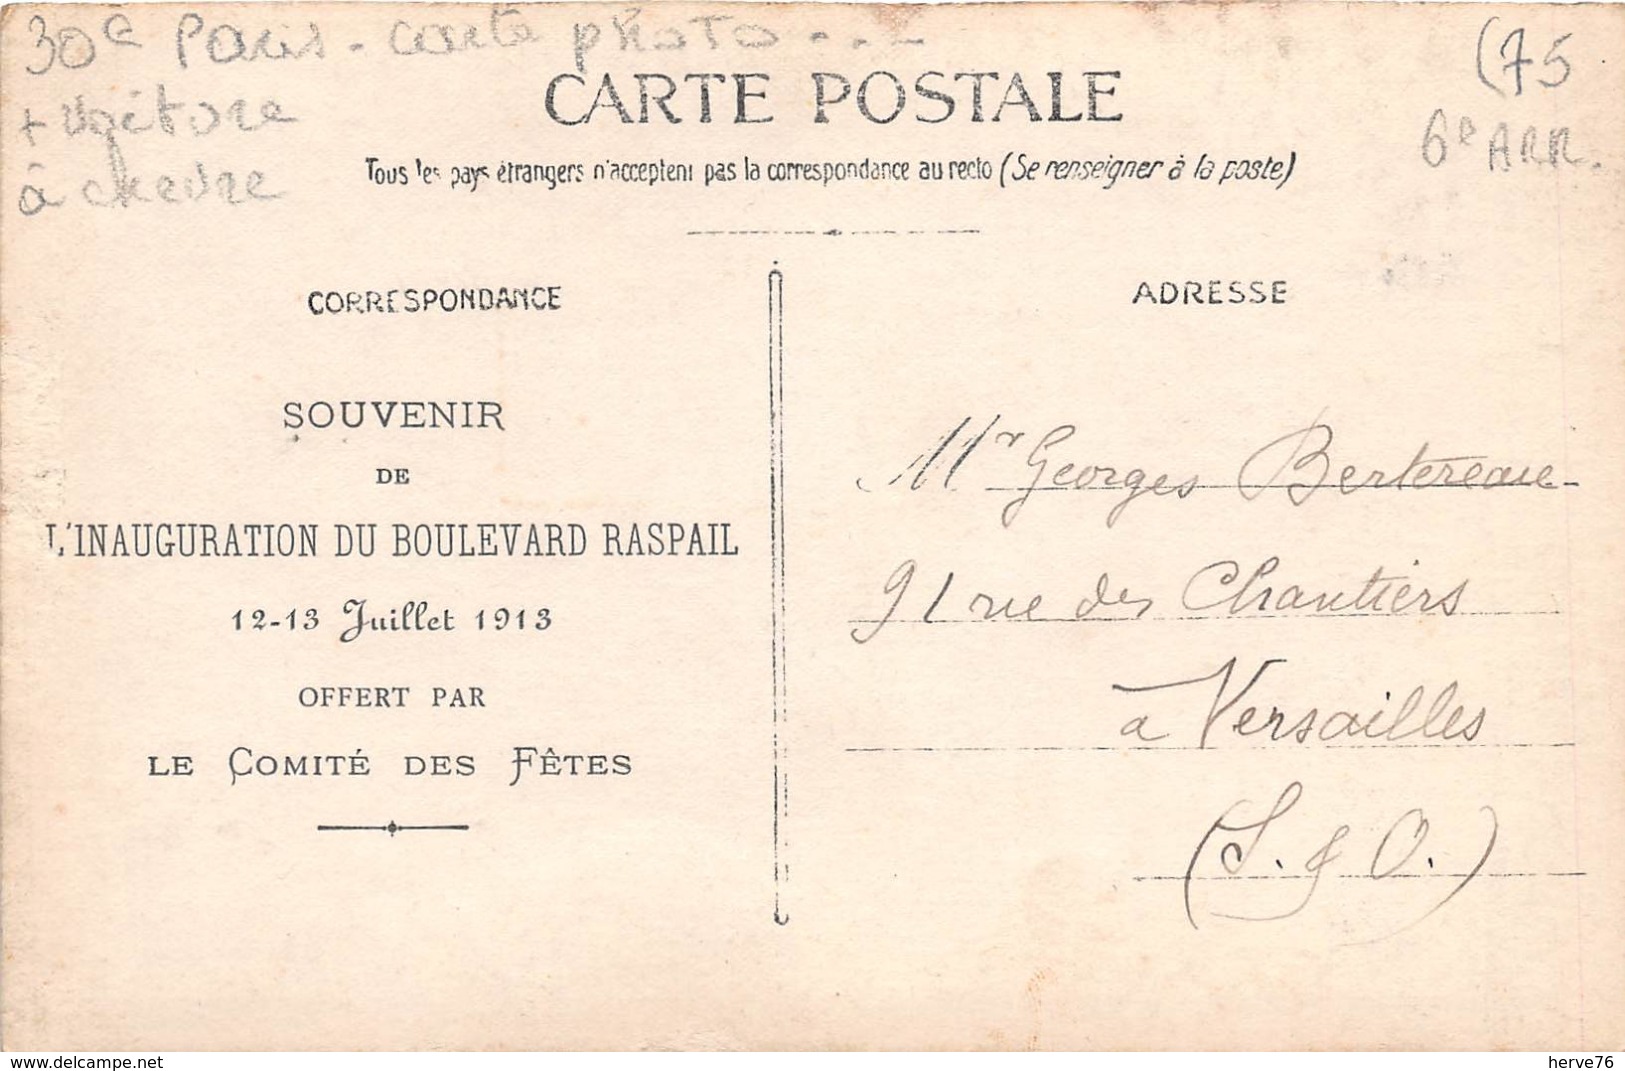 30e Paris - carte photo - - -
+ voiture
à chèvre
(75
6e ARR.
CARTE POSTALE
Tous les pays étrangers n'acceptent pas la correspondance au recto (Se renseigner à la poste)
CORRESPONDANCE
SOUVENIR
DE
L'INAUGURATION DU BOULEVARD RASPAIL
12-13 Juillet 1913
OFFERT PAR
LE COMITÉ DES FÊTES
ADRESSE
Mr Georges Bertereau
91 rue des Chantiers
à Versailles
(S. & O.)
www.delcampe.net
herve76